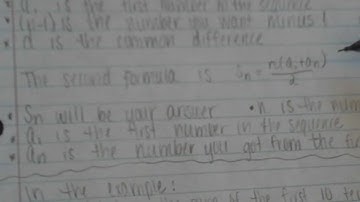 * a₁ is the first number in the sequence
* (n-1) is the number you want minus 1
* d is the common difference
The second formula is Sn = n(a₁+an)/2
* Sn will be your answer • n is the num
* a₁ is the first number in the sequence
* an is the number you got from the
In the example:
of the first 10